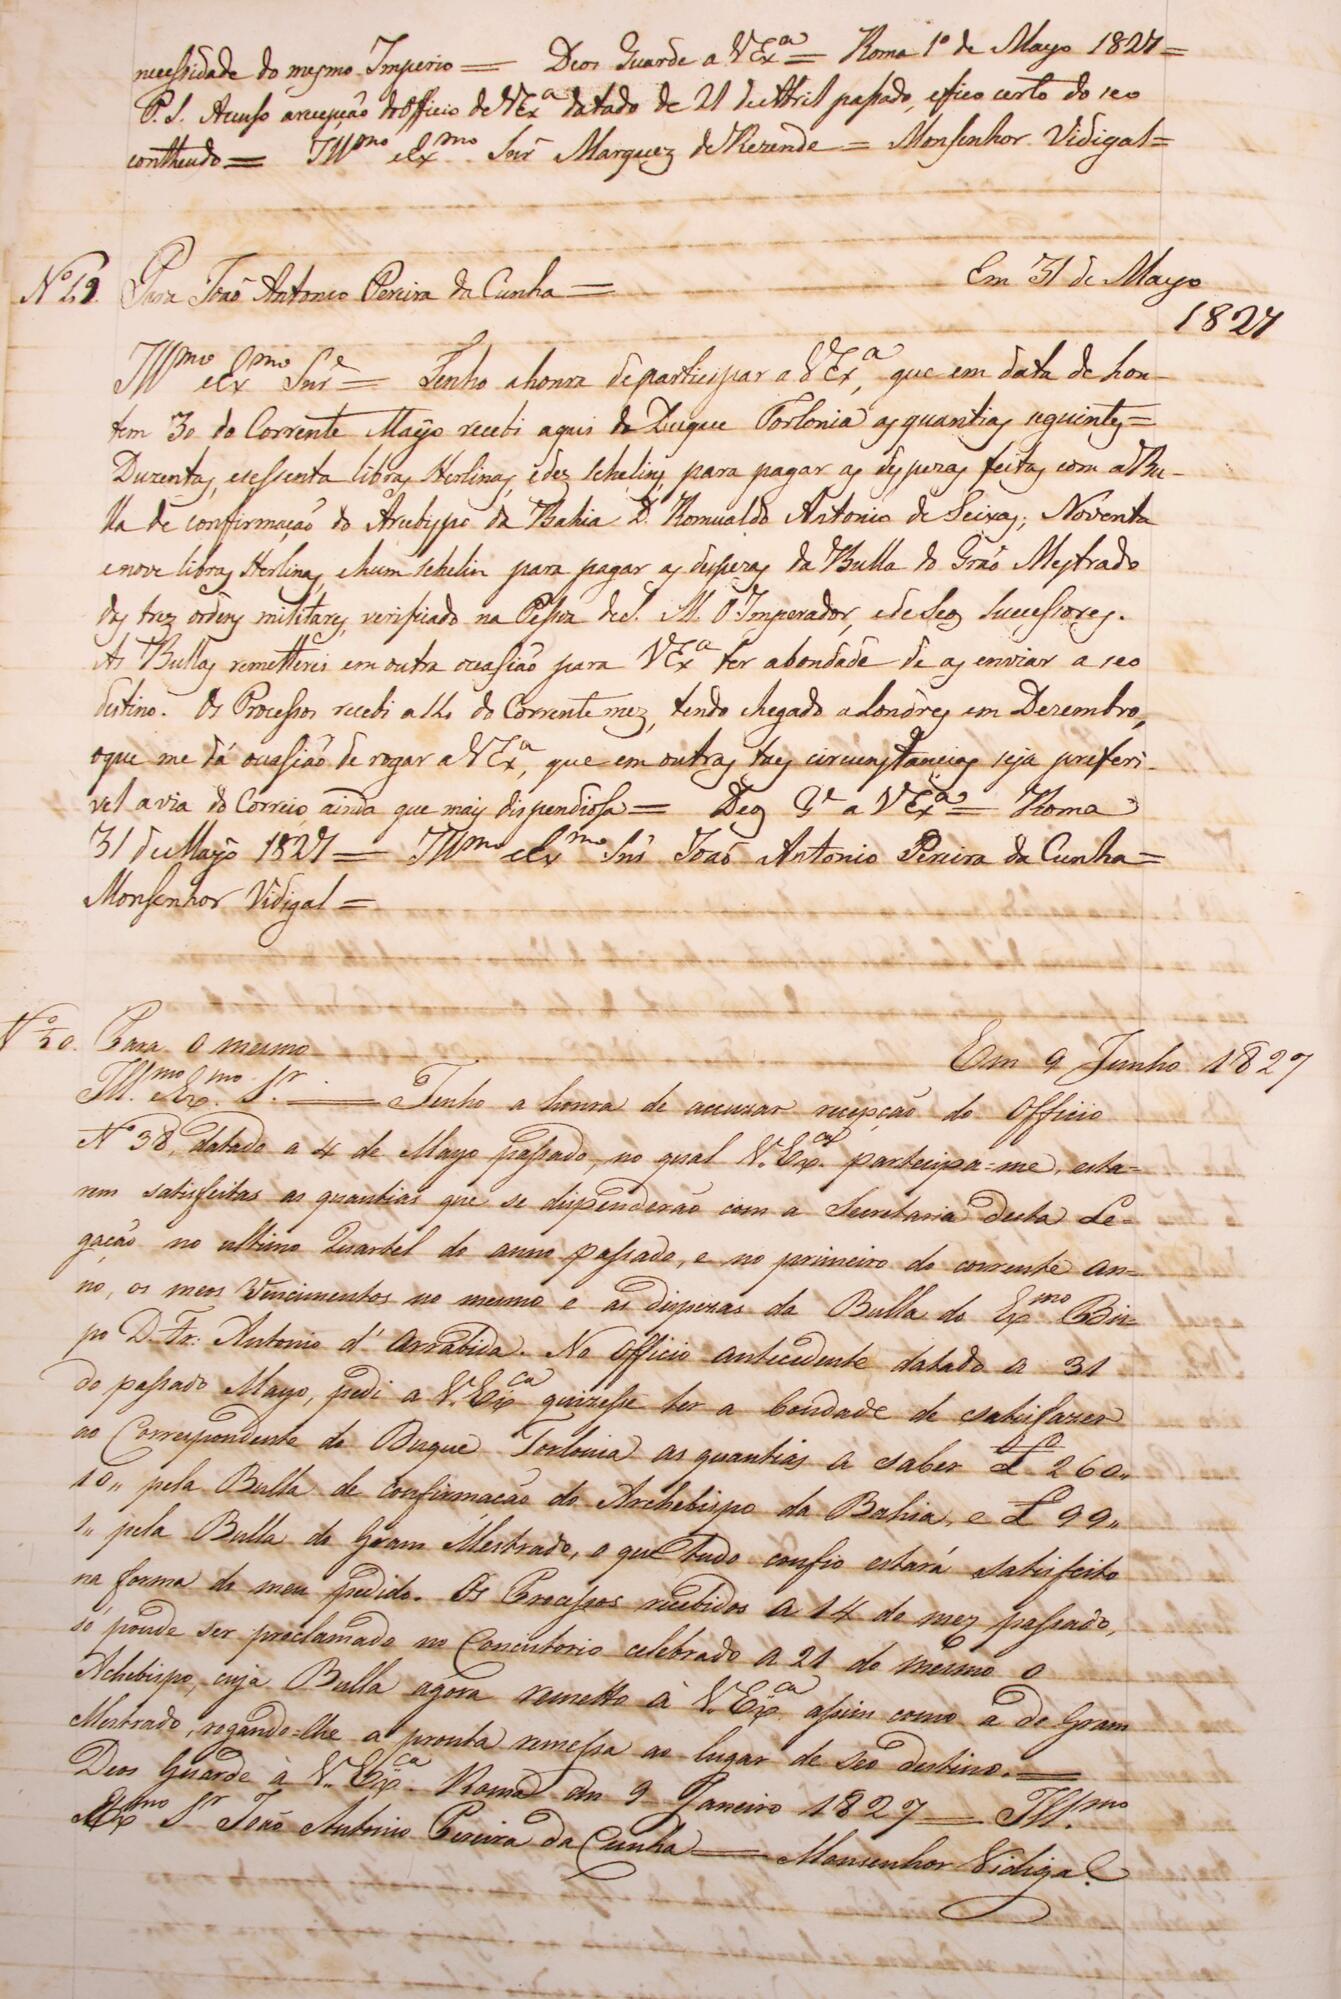 necessidade do mesmo Imperio = Deos Guarde a VExª = Roma 1º de Mayo 1827 =
P. S. Acuso a recepção do Officio de VExª datado de 21 de Abril passado, e fico certo do seo
contheudo = Illmo e Exmo Snr Marquez de Rezende = Monsenhor Vidigal =
Nº 29. Para João Antonio Pereira da Cunha = Em 31 de Mayo
1827
Illmo e Exmo Snr = Tenho a honra de participar a VExª, que em data de hon-
tem 30 do Corrente Mayo recebi aqui do Duque Torlonia as quantias seguintes =
Duzentas, e sessenta libras sterlinas, e dez schelins para pagar as despezas feitas com a Bu-
lla de confirmação do Arcebispo da Bahia D. Romualdo Antonio de Seixas; Noventa
e nove libras sterlinas, e hum schelin para pagar as despezas da Bulla do Grão Mestrado
das trez ordens militares, verificado na Pessoa de S. M. O Imperador, e de seos Successores.
As Bullas remetterei em outra occasião para VExª ter a bondade de as enviar a seo
destino. Os Processos recebi a 14 do Corrente mez, tendo chegado a Londres em Dezembro,
o que me dá occasião de rogar a VExª, que em outras taes circunstancias seja preferi-
vel a via do Correio ainda que mais dispendiosa = Deos Gde a VExª = Roma
31 de Mayo 1827 = Illmo e Exmo Snr João Antonio Pereira da Cunha =
Monsenhor Vidigal =
Nº 30. Para o mesmo Em 9 Junho 1827
Ill.mo Ex.mo S.r = Tenho a honra de accuzar recepção do Officio
Nº 38, datado a 4 de Mayo passado, no qual V. Ex.ca partecipa=me, esta=
rem satisfeitas as quantias que se dispenderão com a Secretaria desta Le=
gação no ultimo Quartel do anno passado, e no primeiro do corrente an=
no, os meos Vencimentos no mesmo e as dispezas da Bulla do Exmo Bis-
po D. Fr: Antonio d' Arrabida. No Officio antecedente datado a 31
do passado Mayo, pedi a V. Ex.ca quizesse ter a bondade de satisfazer
ao Correspondente do Duque Torlonia as quantias a saber £ 260,,
10,, pela Bulla de Confirmação do Archebispo da Bahia, e £ 99,,
1,, pela Bulla do Gram Mestrado, o que tudo confio estará satisfeito
na forma do meu pedido. Os Processos recebidos a 14 do mez passado,
só poude ser proclamado no Concistorio celebrado a 21 do mesmo o
Achebispo, cuja Bulla agora remetto à V. Ex.ca assim como a do Gram
Mestrado, rogando=lhe a pronta remessa ao lugar de seo destino. =
Deos Guarde à V. Ex.ca Roma 9 Janeiro 1827 = Ill.mo
Exmo Sr João Antonio Pereira da Cunha = Monsenhor Vidigal.